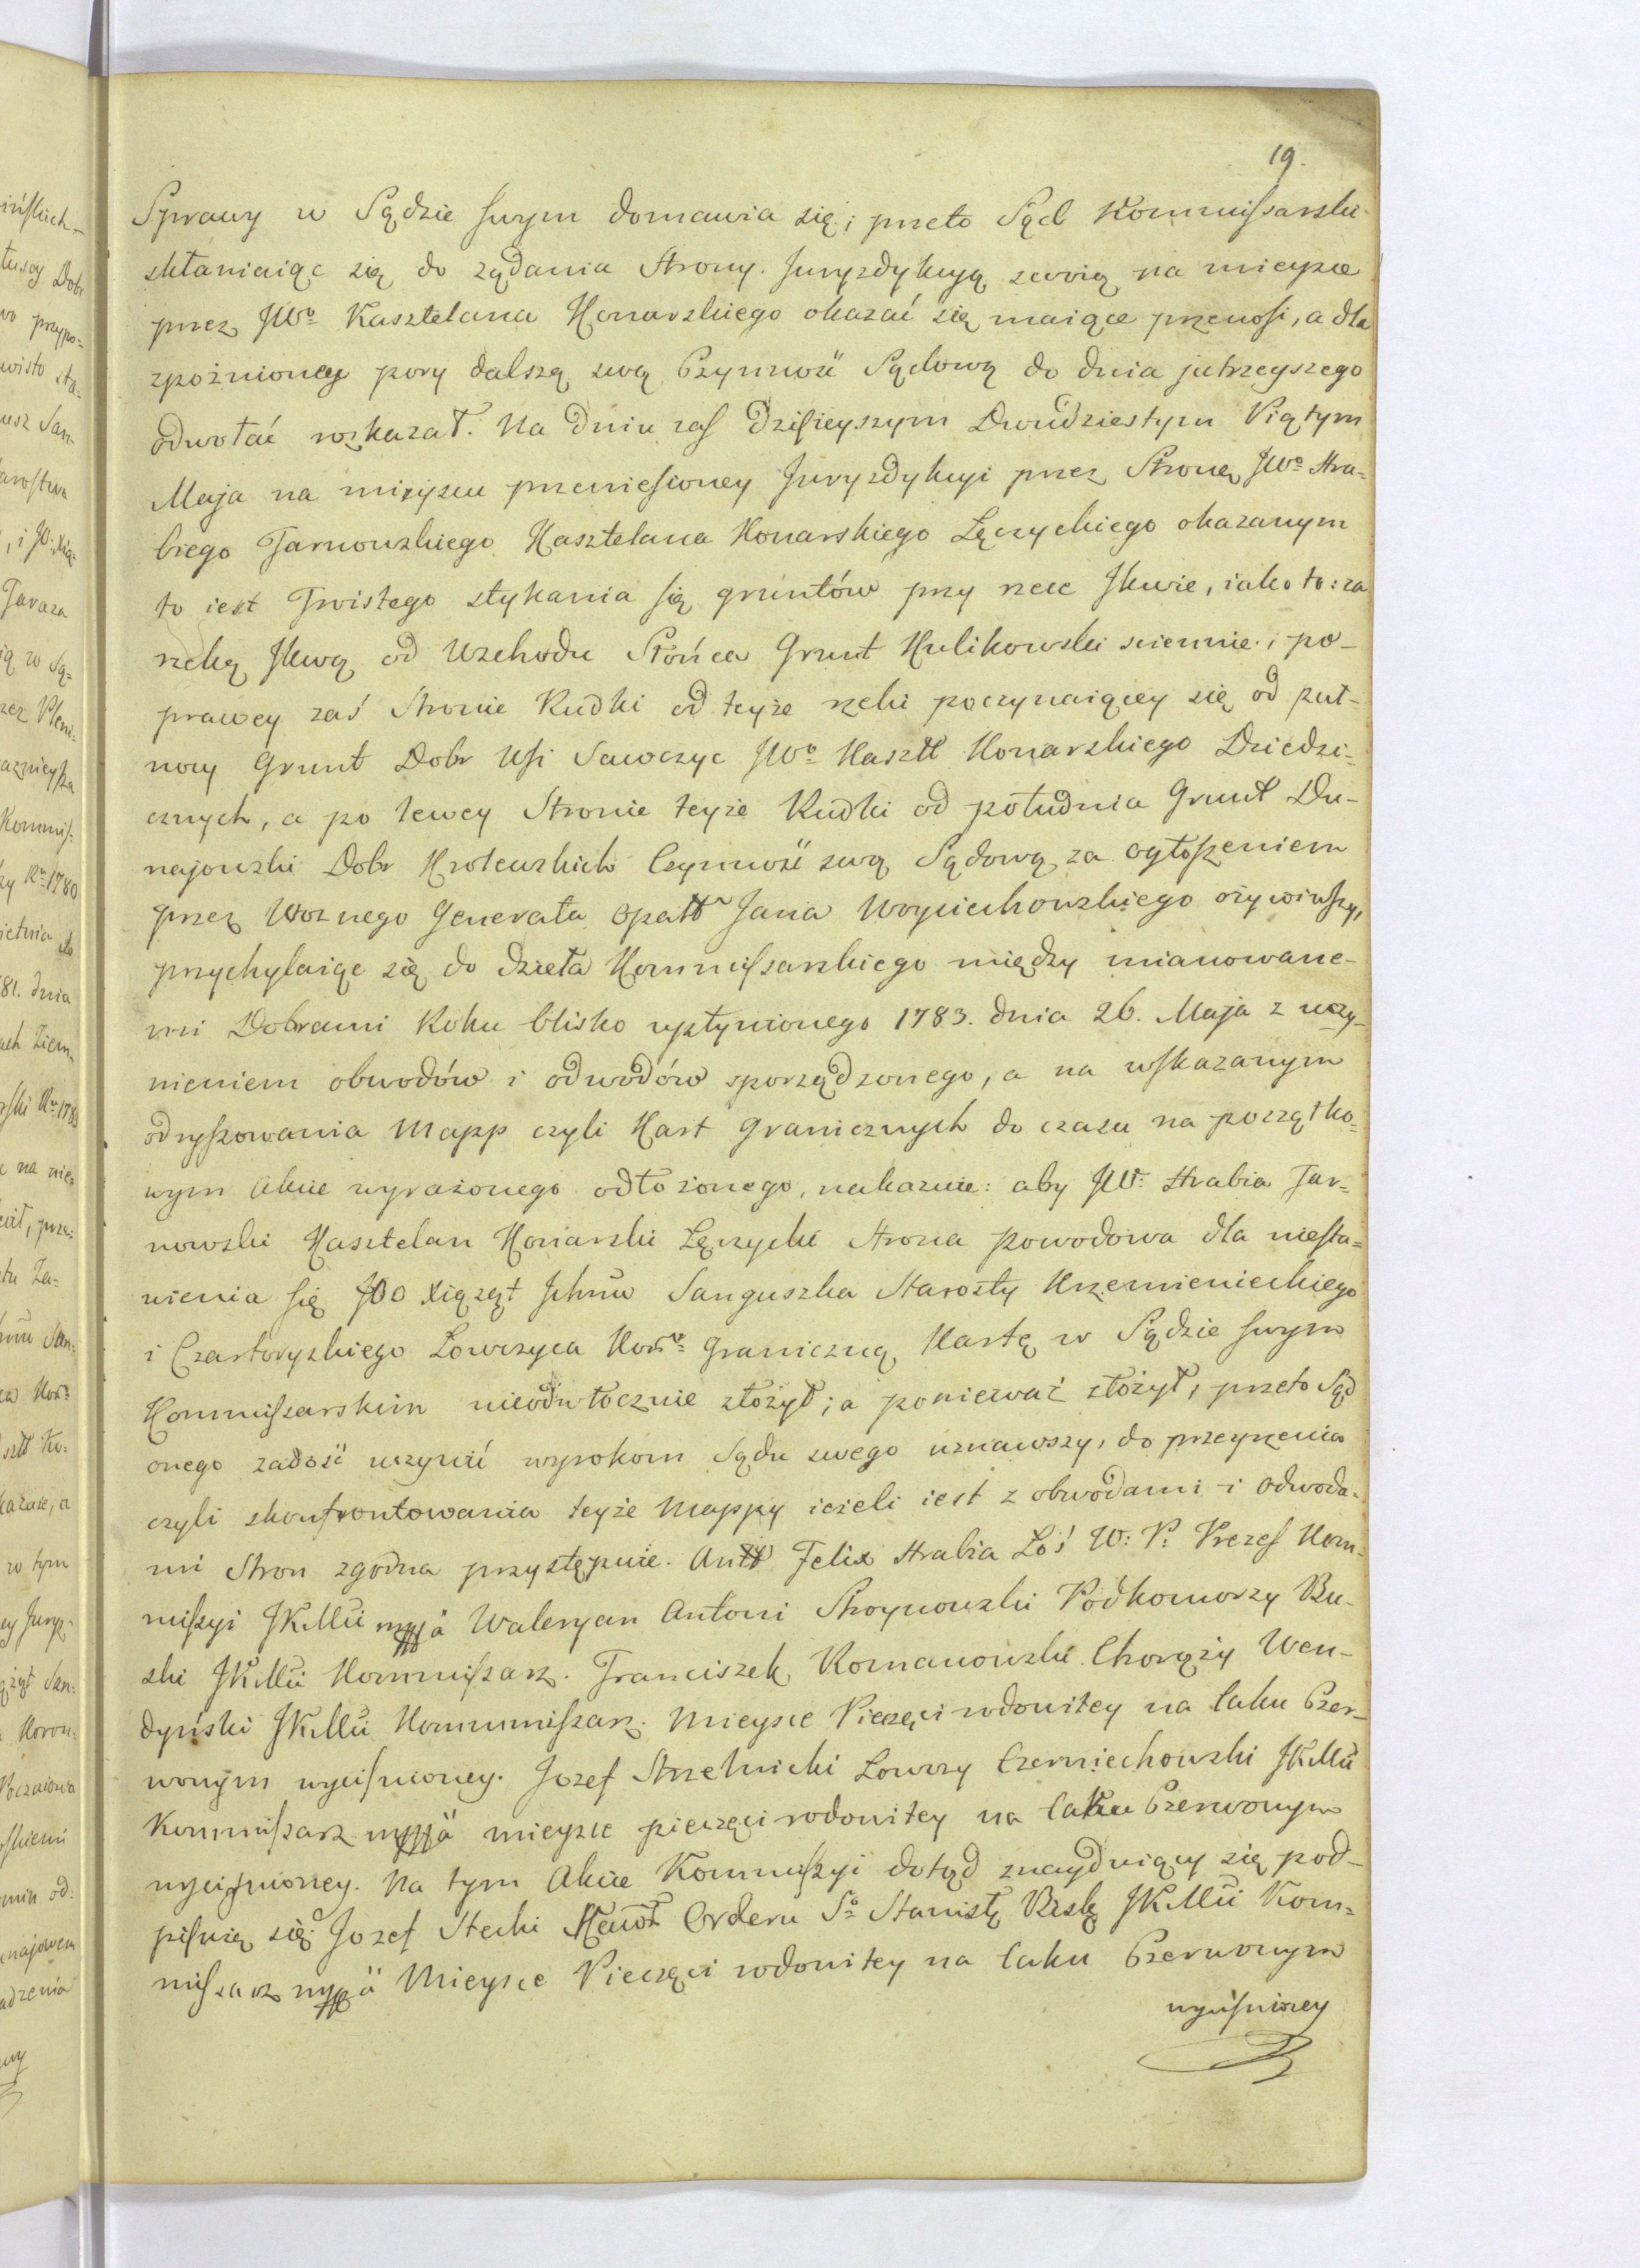 19.
Sprawy w Sądzie swym domawia się; przeto Sąd Kommissarski
skłaniaiąc się do żądania Strony. Juryzdykcyą swoią na mieysce
przez JWo Kasztelana Konarskiego okazać się maiące przenosi, a dla
zpoźnioney pory dalszą swą Czynność Sądową do dnia jutrzeyszego
odwołać rozkazał. Na dniu zaś dzisieyszym Dwudziestym Piątym
Maja na mieyscu przeniesioney Juryzdykcyi przez Stronę JWo Hra=
biego Tarnowskiego Kasztelana Konarskiego Łęczyckiego okazanym
to iest Troistego stykania się gruntów przy rzece Ikwie, iako to: za
rzeką Ikwą od Wschodu Słońca Grunt Kulikowski sciennie; po-
prawey zaś Stronie Rudki od teyże rzeki poczynaiącey się od put-
nocy Grunt Dobr Wsi Sawczyc JWo Kasztt Konarskiego Dziedzi=
cznych, a po lewey Stronie teyże Rudki od południa Grunt Du-
najowski Dobr Krolewskich Czynność swą Sądową za ogłoszeniem
przez Woznego Generała Opatt Jana Woyciechowskiego ożywiwszy,
przychylaiąc się do dzieła Kommissarskiego między mianowane-
mi Dobrami Roku blisko upłynionego 1783. dnia 26. Maja z uczy-
nieniem obwodów i odwodów sporządzonego, a na wskazanym
odryssowania Mapp czyli Kart Granicznych do czasu na początko=
wym Akcie wyrażonego odłożonego, nakazuie: aby JW. Hrabia Tar=
nowski Kasztelan Konarski Łęczycki Strona powodowa dla niesta=
nienia się JOO Xiążąt Ichmw Sanguszka Starosty Krzemienieckiego
i Czartoryskiego Łowczyca Koro: Graniczną Kartę w Sądzie swym
Kommissarskim nieodwłocznie złożył; a poniewaź złożył, przeto Sąd
onego zadość uczynić wyrokom Sądu swego uznawszy, do przeyrzenia
czyli skonfrontowania teyże Mappy ieżeli iest z obwodami i odwoda=
mi Stron zgodna przystępuie. Antt Felix Hrabia Łoś W: P: Prezes Kom=
missyi JKMci mppä Waleryan Antoni Stroynowski Podkomorzy Bu-
ski JKMci Kommissarz. Franciszek Romanowski Chorąży Wen-
dyński JKMci Kommmissarz. Mieysce Pieczęci rodowitey na laku Czer-
wonym wyciśnioney. Jozef Strzelnicki Łowczy Czerniechowski JKMci
Kommissarz mppä mieysce pieczęci rodowitey na laku Czerwonym
wyciśnioney. Na tym Akcie Kommissyi dotąd znayduiący się pod-
pisuię się: Jozef Stecki Orderu So Stanisł JKMci Kom=
missarz mppä Mieysce Pieczęci rodowitey na laku Czerwonym
wyciśnioney